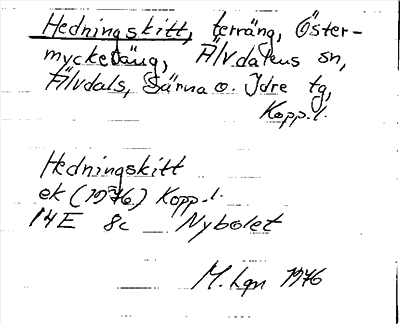 Hedningskitt, terräng, Öster-
myckeläng, Älvdalens sn,
Älvdals, Särna o. Idre tg,
Kopp.l.
Hedningskitt
ek (1976) Kopp.l.
14E 8c Nybolet
M. Lgn 1976